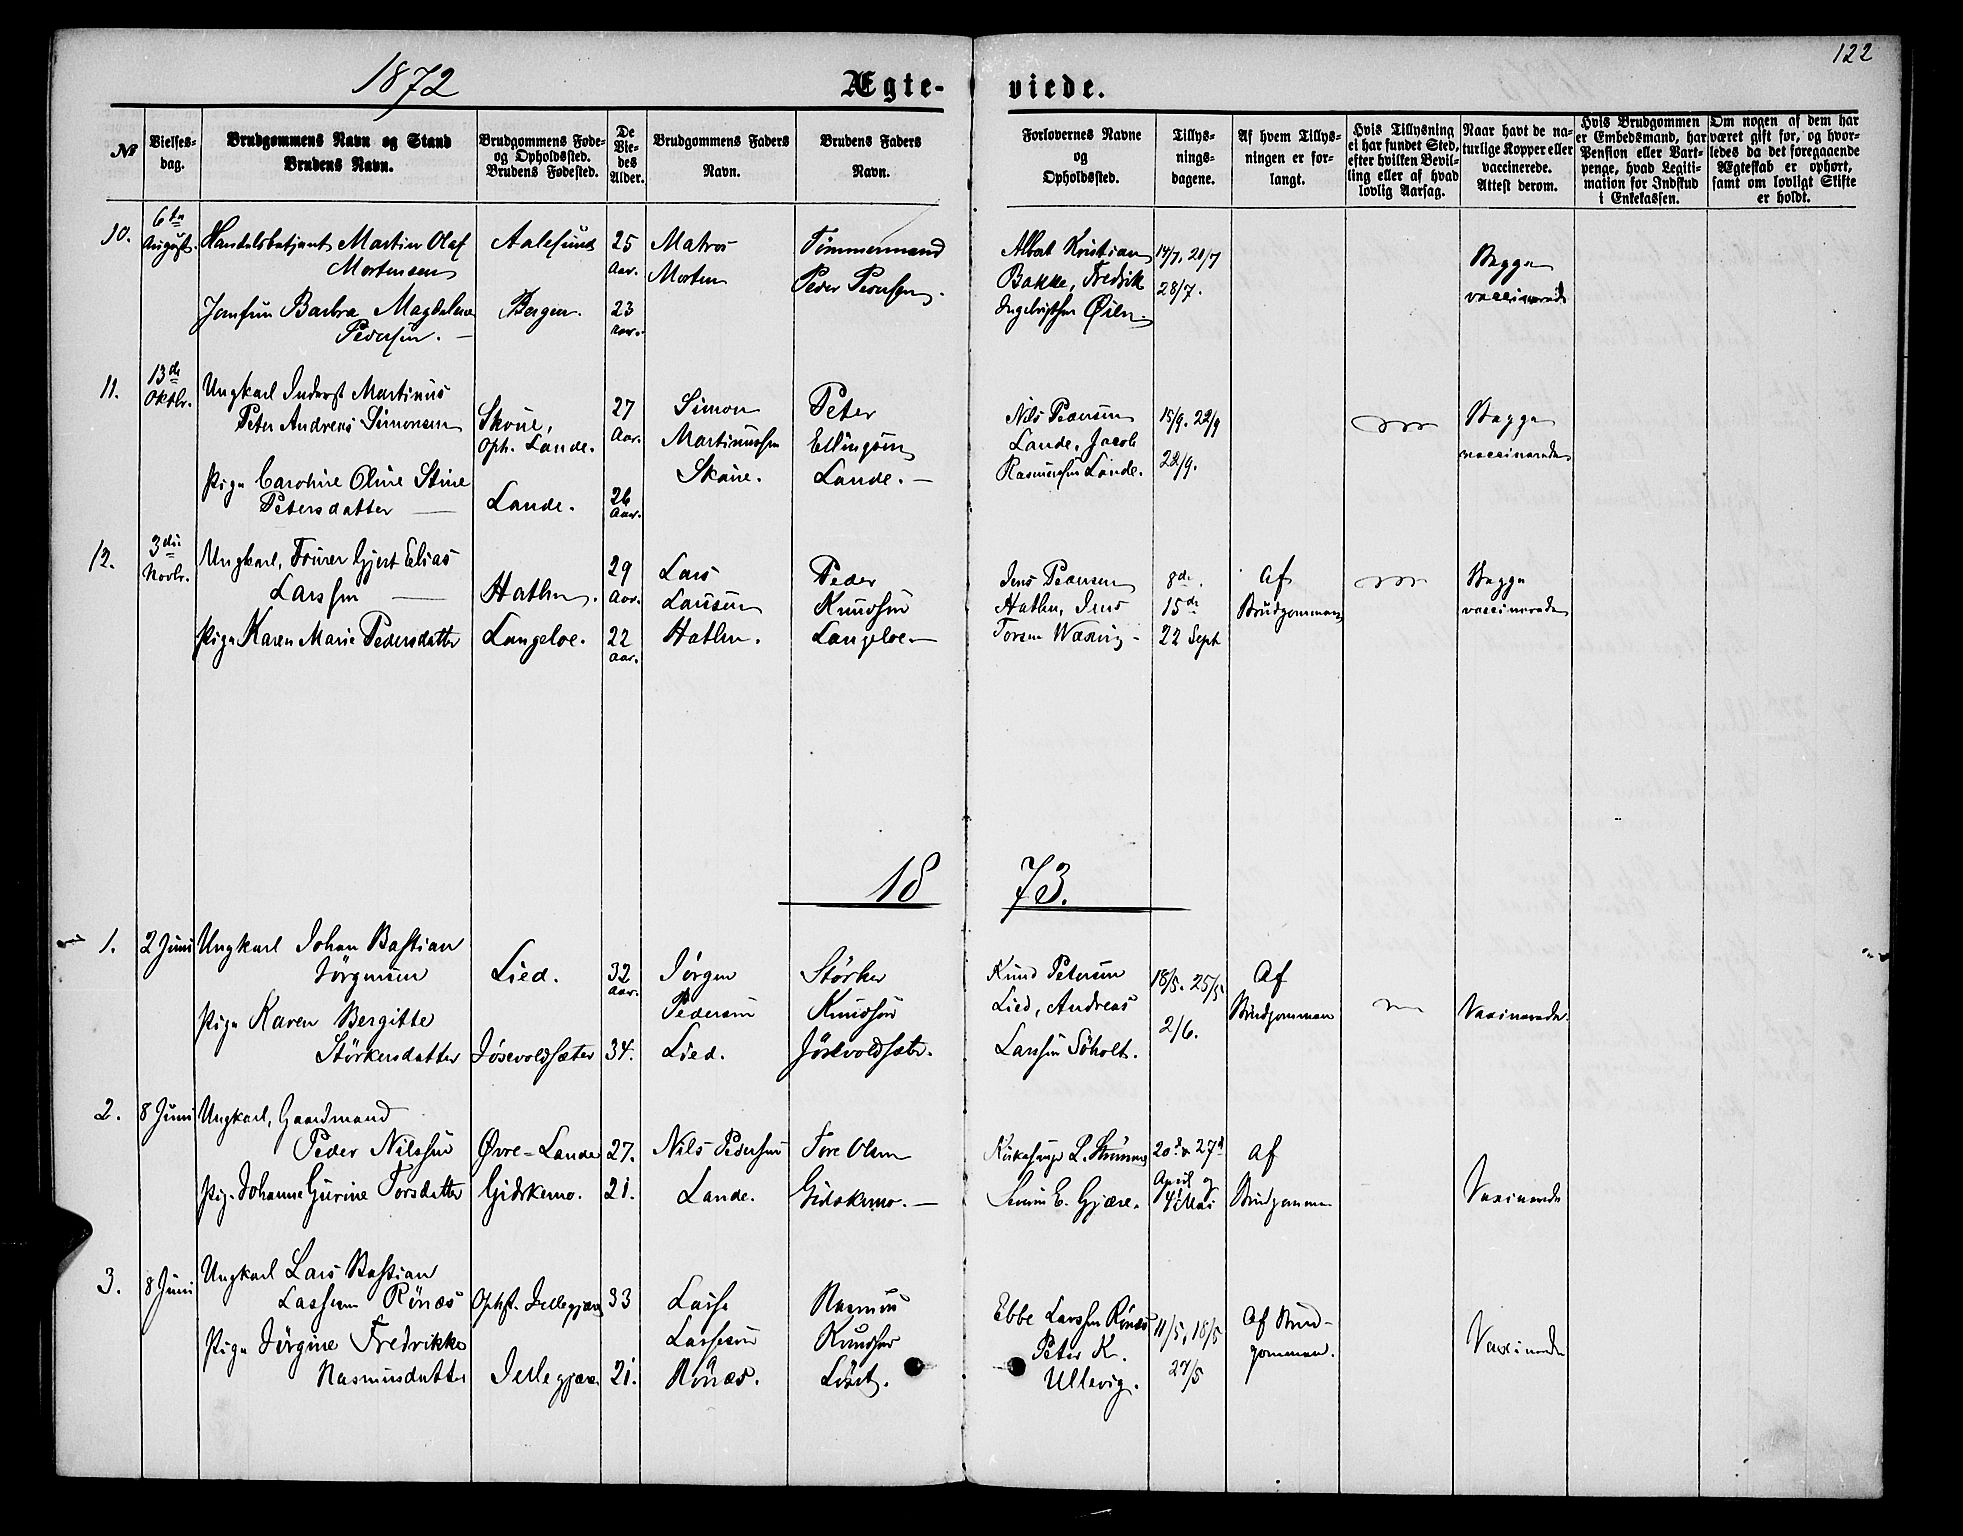 122
1872
Ægte-
viede.
№
Vielses-
dag.
Brudgommens Navn og Stand
Brudens Navn.
Brudgommens Føde-
og Opholdssted.
Brudens Fødested.
De
Vie-
des
Alder.
Brudgommens Faders
Navn.
Brudens Faders
Navn.
Forlovernes Navne
og
Opholdssted.
Tillys-
nings-
dagene.
Af hvem Tillys-
ningen er for-
langt.
Hvis Tillysning
ei har fundet Sted,
efter hvilken Bevil-
ling eller af hvad
lovlig Aarsag.
Naar havt de na-
turlige Kopper eller
vaccinerede.
Attest derom.
Hvis Brudgommen
er Embedsmand, har
Pension eller Vart-
penge, hvad Legiti-
mation for Indskud
i Enkekassen.
Om nogen af dem har
været gift før, og hvor-
ledes da det foregaaende
Ægteskab er ophørt,
samt om lovligt Skifte
er holdt.
10.
6te
August.
Handelsbetjent Martin Olaf
Mortensen
Jomfru Barbra Magdalena
Pedersen. —
Aalesund
Bergen.
25
Aar.
23
Aar.
Matros
Morten
Tømmermand
Peder Pedersen.
Albert Kristian
Bakke, Fredrik
Øien.
14/7. 21/7
28/7.
Begge
vaccinerede
11.
13de
Oktbr.
Ungkarl Inderst Martinus
Peter Andreas Simonsen
Pige Caroline Oline Stine
Petersdatter —
Skoue,
Oph. Lande.
Lande.
27
Aar.
26
Aar.
Simon
Martinussen
Skoue.
Peter
Ellingsen
Lande. —
Nils Pedersen
Lande, Jacob
Rasmussen Lande.
15/9. 22/9
22/9.
Begge
vaccinerede
12.
3die
Novbr.
Ungkarl, Fourer Gjert Elias
Larssen —
Pige Karen Marie Pedersdatter
Hathn.
Langeloe.
29
Aar.
22
Aar.
Lars
Larssen
Hathn.
Peder
Knudsen
Langeloe —
Jens Pedersen
Hathn, Jens
8de.
15de
22 Sept
Af
Brudgommen
Begge
vaccinerede
18
73.
1.
2 Juni
Ungkarl Johan Bastian
Jörgensen
Pige Karen Bergitte
Störkersdatter
Lied.
Jösevoldsæter
32
Aar.
34.
Jörgen
Pedersen
Lied.
Störker
Knudsen
Jösevoldsæter.
Knud Petersen
Lied, Andreas
Larssen Söholt.
18/5. 25/5.
2/6.
Af
Brudgommen
Vaxinerede.
2.
8 Juni
Ungkarl, Gaardmand
Peder Nilssen
Pige Johanne Gurine Torsdatter
Øvre-Lande
Gidskemo.
27.
21.
Nils Pedersen
Lande.
Tore Olsen
Gidskemo. —
Kirkesanger L.
E. Gjære.
20de & 27de
April og
4 Mai
Af
Brudgommen
Vaxinerede
3.
8 Juni
Ungkarl Lars Bastian
Lassesen Rönæs
Pige Jörgine Fredrikke
Rasmusdatter
Ophst. Jellegjære
Jellegjære
33
21.
Lasse
Lassesen
Rönæs.
Rasmus
Knudsen
Ebbe Larssen Rönæs
Peter K.
Ullevig.
11/5, 18/5
27/5
Af Brud-
gommen.
Vaxinerede